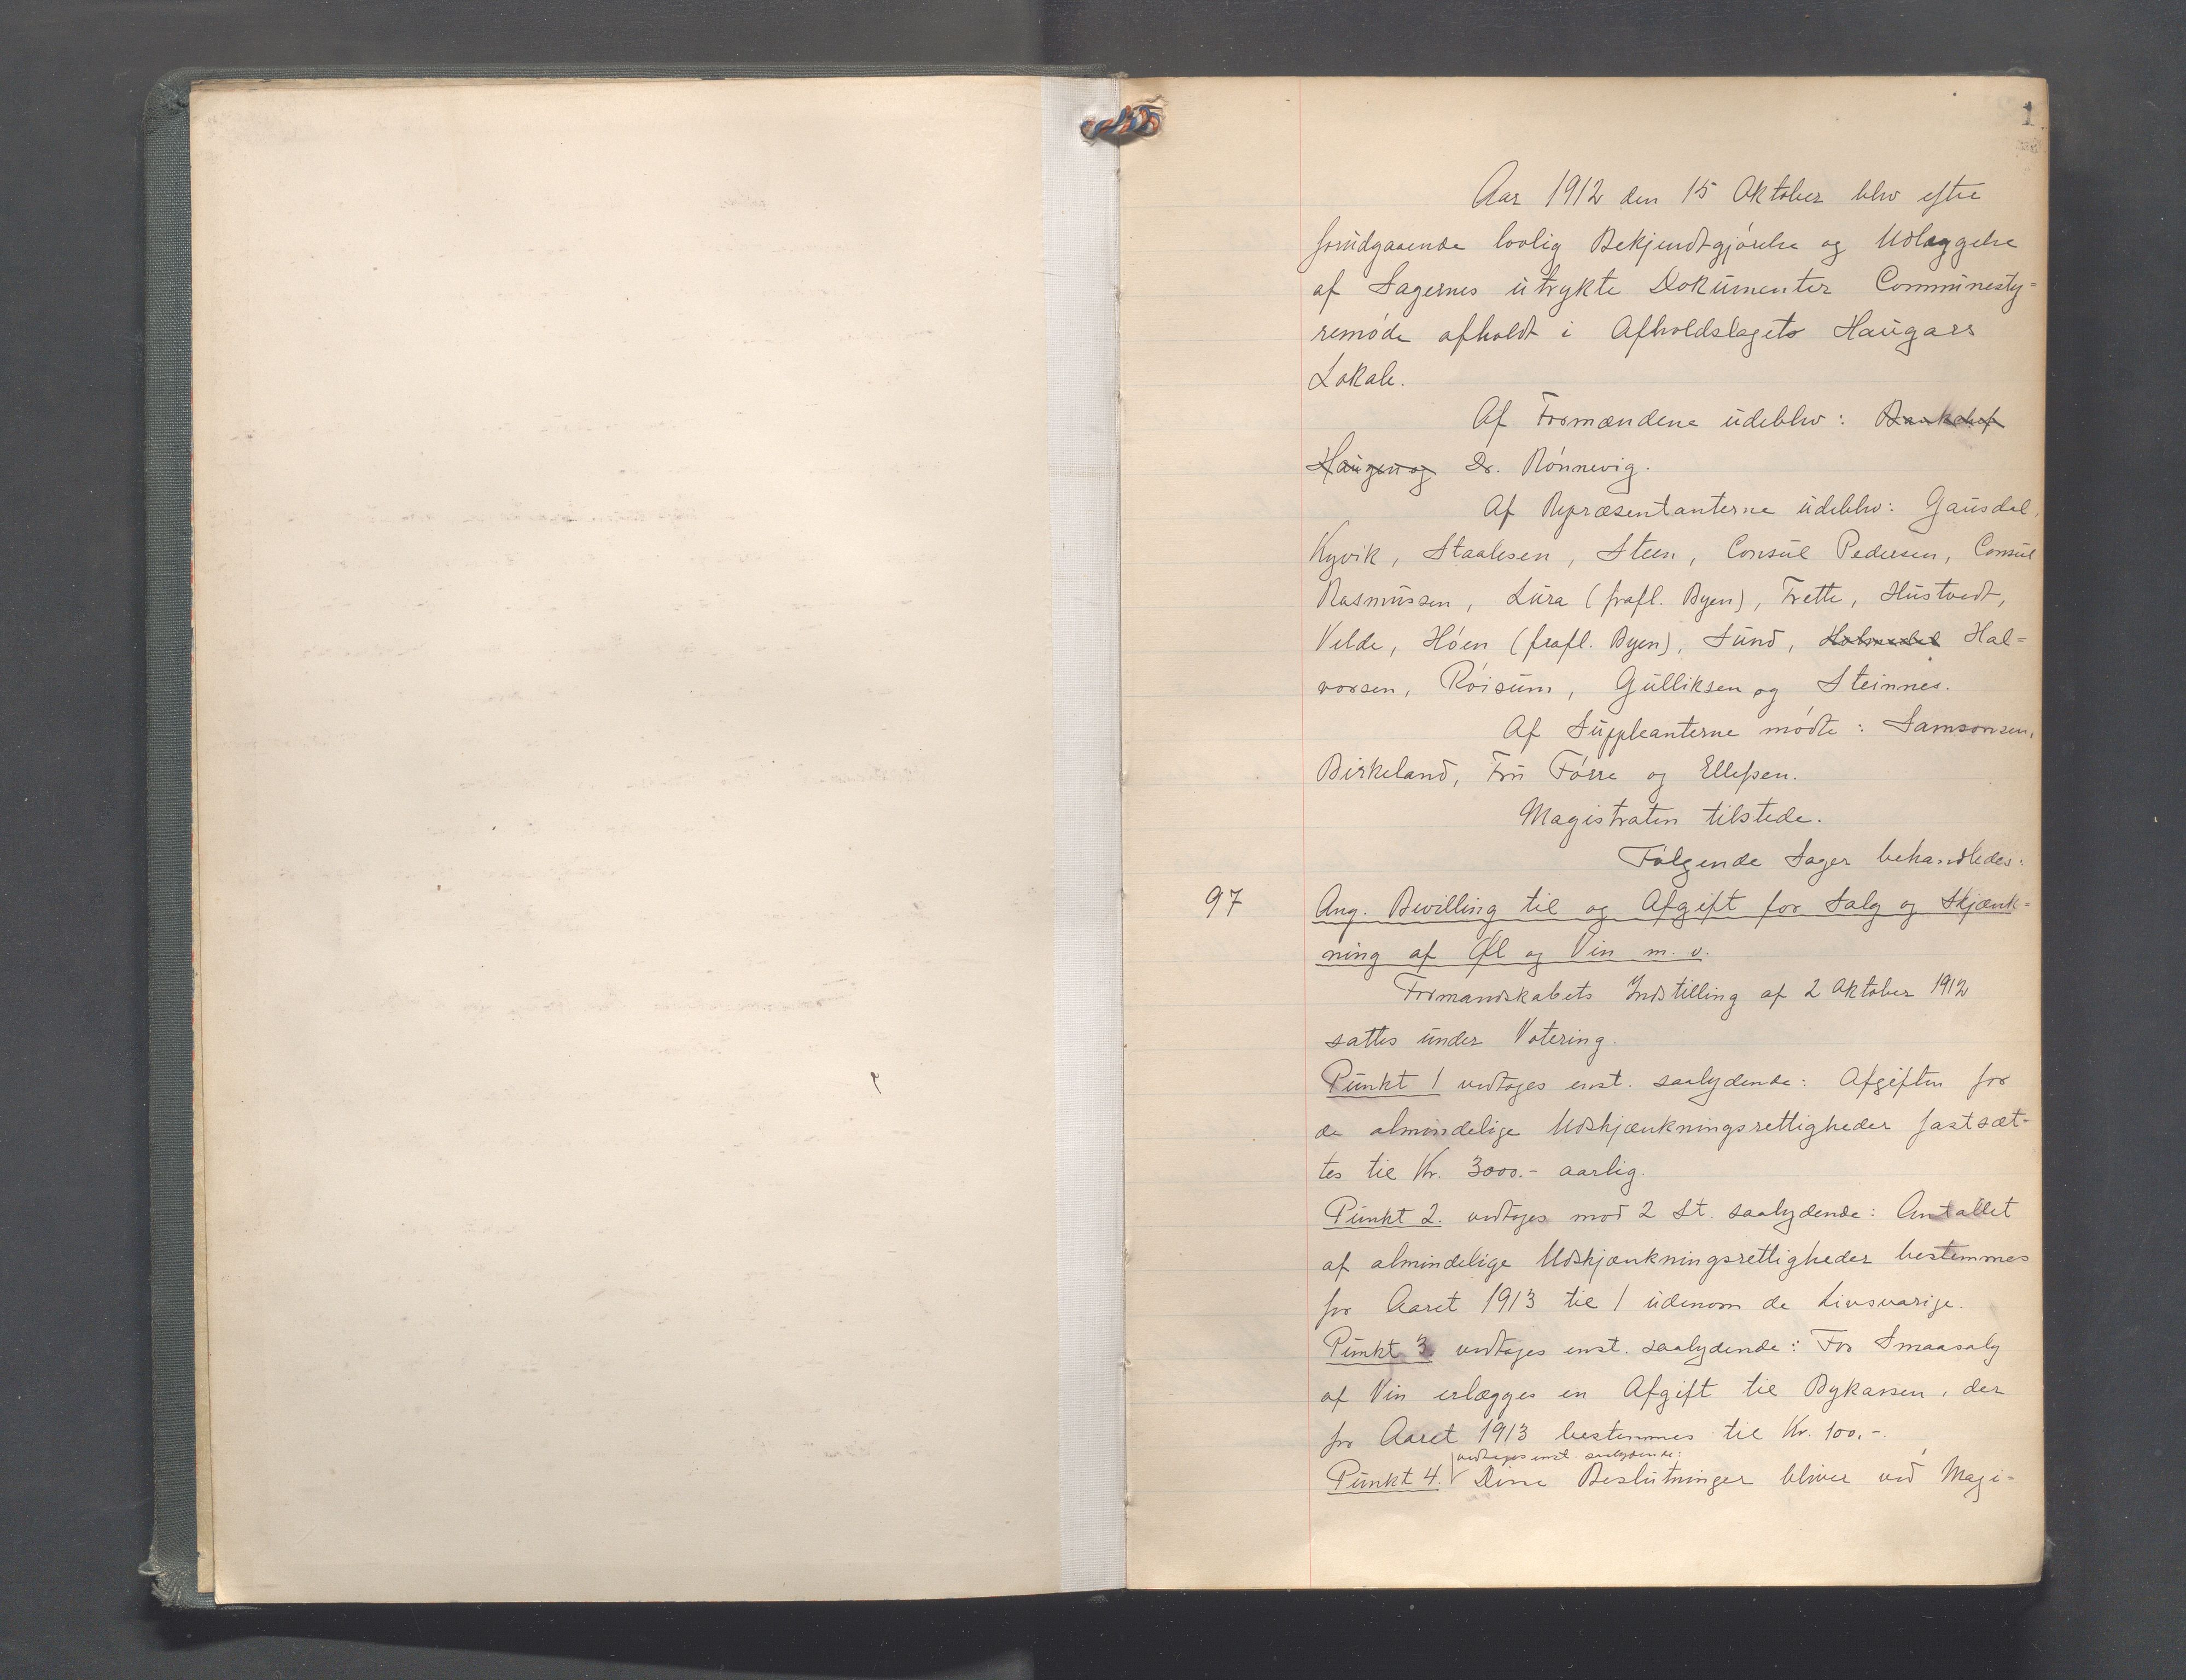 1
Aar 1912 den 15 Oktober blev efter
forudgaaende lovlig Bekjendtgjörelse og Udlæggelse
af Sagernes utrykte Dokumenter Communesty-
remöde afholdt i Afholdslagets Haugars
Lokale.
Af Formændene udeblev: Bankchef
Haugen og Dr. Rönnevig.
Af Repræsentanterne udeblev: Gausdal,
Kyvik, Staalesen, Steen, Consul Pedersen, Consul
Rasmussen, Lura (frafl. Byen), Trette, Hustvedt,
Velde, Höen (frafl. Byen), Sund, Hal=
vorsen, Röisum, Gulliksen og Steinnes.
Af Suppleanterne mödte: Samsonsen,
Birkeland, Fru Förre og Ellefsen.
Magistraten tilstede.
Fölgende Sager behandledes:
97 Ang. Bevilling til og Afgift for Salg og Skjænk=
ning af Øl og Vin m. v.
Formandskabets Indstilling af 2 Oktober 1912
sattes under Votering.
Punkt 1 vedtoges enst. saalydende: Afgiften for
de almindelige Udskjænkningsrettigheder fastsæt-
tes til Kr. 3000.- aarlig.
Punkt 2. vedtoges mod 2 St. saalydende: Antallet
af almindelige Udskjænkningsrettigheder bestemmes
for Aaret 1913 til 1 udenom de Livsvarige.
Punkt 3. vedtoges enst. saalydende: For Smaasalg
af Vin erlægges en Afgift til Bykassen, der
for Aaret 1913 bestemmes til Kr. 100.-.
vedtoges enst. saalydende:
Punkt 4. Disse Beslutninger bliver ved Magi=